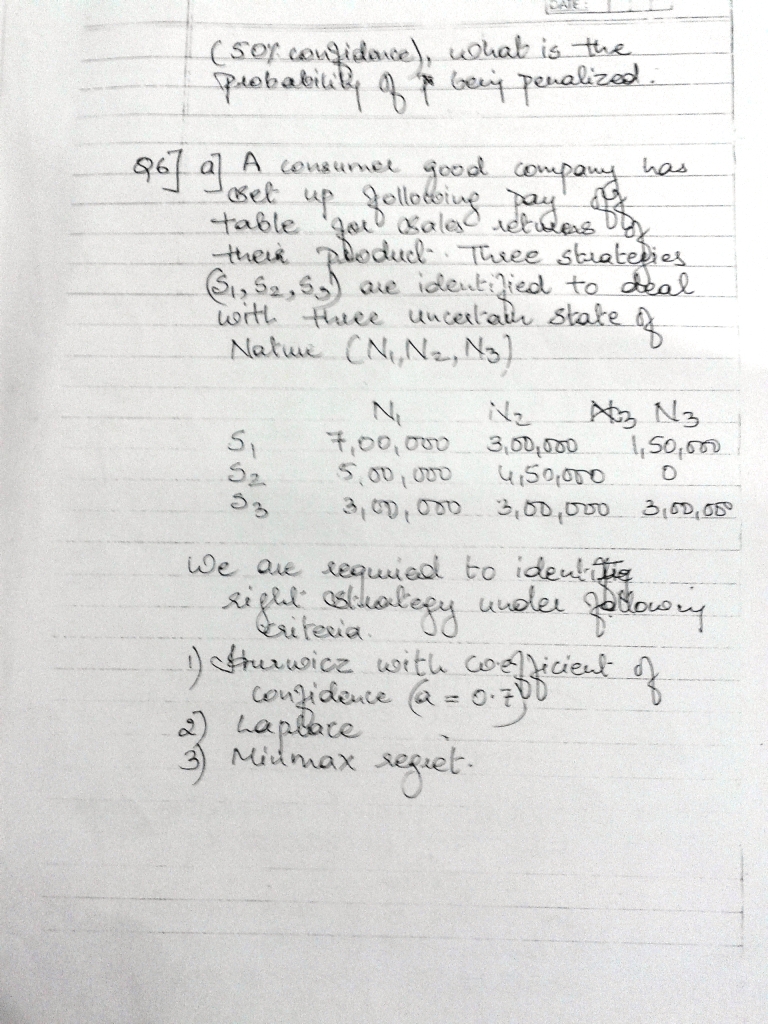 DATE:
(50% confidance), what is the
probability of being penalized.
Q6] a] A consumer good company has
set up following pay off
table for sales returns of
their product. Three strategies
(S1, S2, S3) are identified to deal
with three uncertain state of
Nature (N1, N2, N3)
N1 N2 N3
S1 7,00,000 3,00,000 1,50,000
S2 5,00,000 4,50,000 0
S3 3,00,000 3,00,000 3,00,000
We are required to identify
right strategy under following
criteria.
1) Hurwicz with coefficient of
confidence (a = 0.7)
2) Laplace
3) Minmax regret.